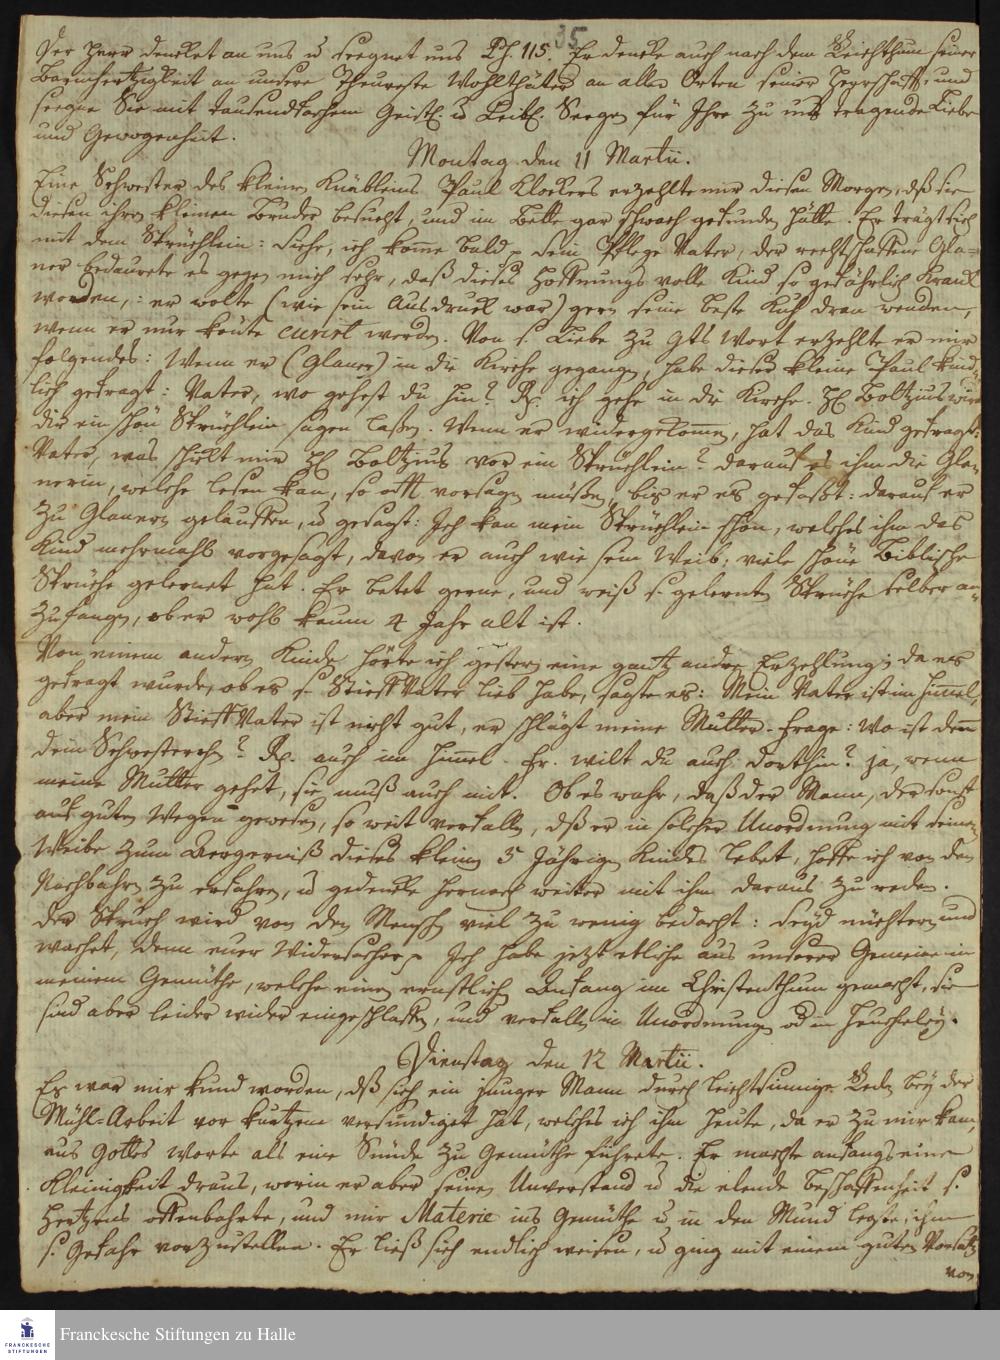 35
Der Herr dencket an uns u. seegnet uns Ps. 115. Er dencke auch nach dem Reichthum seiner
Barmhertzigkeit an unsere Theureste Wohlthäter an allen Orten seiner Herrschafft, und
seegne Sie mit tausendfachem Geistl. u. Leibl. Seegen für Ihre zu uns tragende Liebe
und Gewogenheit.
Montag den 11 Martii.
Eine Schwester des kleinen Knäbleins Paul Klockers erzehlte mir diesen Morgen, dß sie
diesen ihren kleinen Bruder besucht, und im Bette gar schwach gefunden hätte. Er trägt sich
mit dem Sprüchlein: Siehe, ich kome bald p Sein Pflege Vater, der rechtschaffene Gla-
ner bedaurete es gegen mich sehr, daß dieses Hoffnungs volle Kind so gefährlich kranck
worden,: er wolte (wie sein Ausdruck war) gern seine beste Kuh dran wenden,
wenn er nur könte curirt werden. Von s. Liebe zu Gts Wort erzehlte er mir
folgendes: Wenn er (Glaner) in die Kirche gegangen, habe dieser kleine Paul kind-
lich gefragt: Vater, wo gehest du hin? R. ich gehe in die Kirche. H. Boltzius wird
dir ein schön Sprüchlein sagen laßen. Wenn er widergekomen, hat das Kind gefragt:
Vater, was schickt mir H. Boltzius vor ein Sprüchlein? Darauf es ihm die Gla-
nerin, welche lesen kan, so oft vorsagen müßen, bis er es gefaßt: darauf er
zu Glanern gelauffen, u. gesagt: Ich kan mein Sprüchlein schon, welches ihm das
Kind mehrmahls vorgesagt, davon er auch wie sein Weib, viele schöne Biblische
Sprüche gelernet hat. Er betet gerne, und weiß s. gelernten Sprüche selber an-
zufangen, ob er wohl kaum 4 Jahr alt ist.
Von einem andern Kinde hörte ich gestern eine gantz andre Erzehlung; da es
gefragt wurde, ob es s. Stieff Vater lieb habe, sagte es: Mein Vater ist im Himel,
aber mein Stieff Vater ist nicht gut, er schlägt meine Mutter. Frage: Wo ist denn
dein Schwesterchen? R. auch im Himel. Fr. wilt du auch dorthin? ja, wenn
meine Mutter gehet, sie muß auch mit. Ob es wahr, daß der Mann, der sonst
auf guten Wegen gewesen, so weit verfallen, dß er in solcher Unordnung mit seinem
Weibe zum Aergerniß dieses kleinen 5 Jährigen Kindes lebet, hoffe ich von den
Nachbahrn zu erfahren, u. gedencke hernach weiter mit ihm daraus zu reden.
Der Spruch wird von den Menschen viel zu wenig bedacht: Seyd nüchtern und
wachet, denn euer Widersacher p Ich habe jetzt etliche aus unserer Gemeine in
meinem Gemüthe, welche einen ernstlichen Anfang im Christenthum gemacht, sie
sind aber leider wider eingeschlaffen, und verfallen in Unordnungen od. in Heucheley.
Dienstag den 12 Martii.
Es war mir kund worden, dß sich ein junger Mann durch leichtsinnige Reden bey der
Mühl-Arbeit vor kurtzem versündiget hat, welches ich ihm heute, da er zu mir kam,
aus Gottes Worte als eine Sünde zu Gemüthe führete. Er machte anfangs eine
Kleinigkeit draus, worin er aber seinen Unverstand u. die elende Beschaffenheit s.
Hertzens offenbahrte, und mir Materie ins Gemüthe u. in den Mund legte, ihm
s. Gefahr vorzustellen. Er ließ sich endlich weisen, u. ging mit einem guten Vorsatz
von
FRANCKESCHE
STIFTUNGEN
Franckesche Stiftungen zu Halle